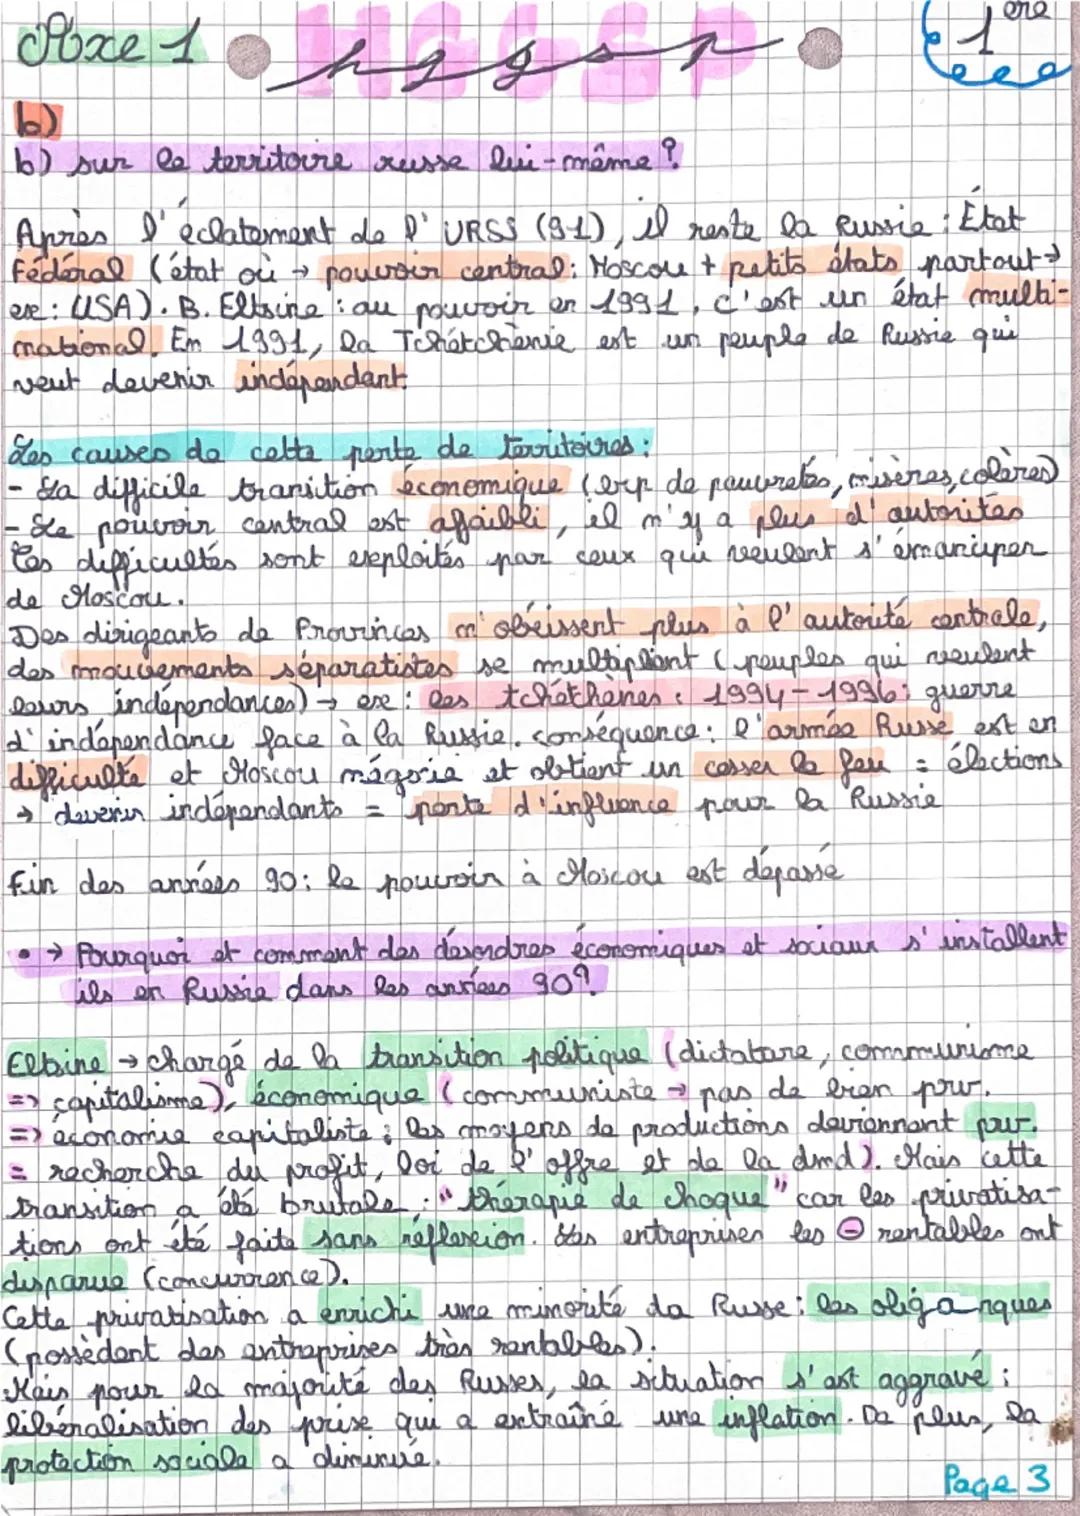 Axe 1
HGGSP
hggsp
1ère
b)
b) sur le territoire russe lui-même ?
Après l'éclatement de l'URSS (91), il reste la Russie : État
Fédéral (état où → pouvoir central : Moscou + petits états partout →
ex : USA). B. Eltsine : au pouvoir en 1991, c'est un état multi-
national. En 1991, la Tchétchènie est un peuple de Russie qui
veut devenir indépendant.
Les causes de cette perte de territoires :
- La difficile transition économique (exp de pauvretés, misères, colères)
- Le pouvoir central est affaibli, il n'y a plus d'autorités
Ces difficultés sont exploités par ceux qui veulent s'émanciper
de Moscou.
Des dirigeants de Provinces n'obéissent plus à l'autorité centrale,
des mouvements séparatistes se multiplient (peuples qui veulent
leurs indépendances) → ex : les tchétchènes : 1994-1996 : guerre
d'indépendance face à la Russie. conséquence : l'armée Russe est en
difficulté et Moscou négocie et obtient un cesser le feu = élections
→ devenir indépendants = perte d'influence pour la Russie
Fin des années 90 : le pouvoir à Moscou est dépassé
• → Pourquoi et comment des désordres économiques et sociaux s'installent
ils en Russie dans les années 90 ?
Eltsine → chargé de la transition politique (dictature, communisme
=> capitalisme), économique (communiste → pas de bien priv.
=> économie capitaliste ; les moyens de productions deviennent priv.
= recherche du profit, loi de l'offre et de la dmd). Mais cette
transition a été brutale : "thérapie de choque" car les privatisa-
tions ont été faite sans réflexion. Les entreprises les ⊖ rentables ont
disparue (concurrence).
Cette privatisation a enrichi une minorité de Russe : les oligarques
(possèdent des entreprises très rentables).
Mais pour la majorité des Russes, la situation s'est aggravé :
libéralisation des prix qui a entraîné une inflation. De plus, la
protection sociale a diminuée.
Page 3